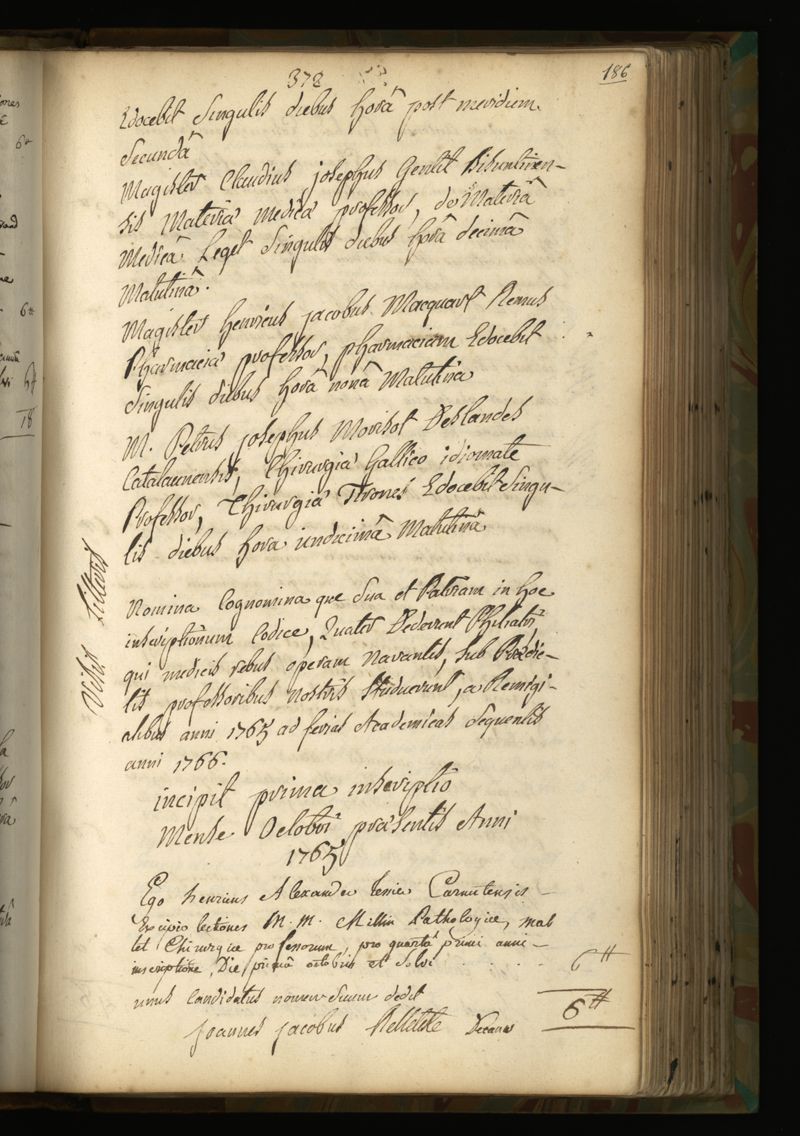 372
186
Edocebit Singulis diebus horâ post meridiem
Secundâ
Magister Claudius josephus Gentil Bisuntinen-
sis Materiæ medicæ professor, de Materiâ
Medicâ Leget Singulis diebus horâ decimâ
Matutinâ.
Magister henricus jacobus Macquart Remus
Pharmaciæ professor, pharmaciam Edocebit
Singulis diebus horâ nonâ Matutina
M. Petrus josephus Morisot Deslandes
Catalaunensis, Chirurgiæ Gallico idiomate
Professor, Chirurgiæ Tirones Edocebit Singu-
lis diebus hora undecimâ Matutinâ
Nomina Cognomina que Sua et Patriam in hoc
inscriptionum Codice, Quater Dederunt Philiatri
qui medicis rebus operam Navantes, Sub
professoribus Nostris Studuerunt, a Remigi-
alibus anni 1765 ad ferias Academicas Sequentis
anni 1766.
incipit prima inscriptio
Mense Octobri præsentis Anni
1765
Ego henricus Alexander Carnutensis
Excipio lectiones M. M. Millin Pathologiæ,
let Chirurgiæ professorum, pro quartâ primi anni
inscriptione, Die primâ octobris et Solvi
6 ₶
unus candidatus nomen Suum dedit
6 ₶
joannes jacobus Decanus